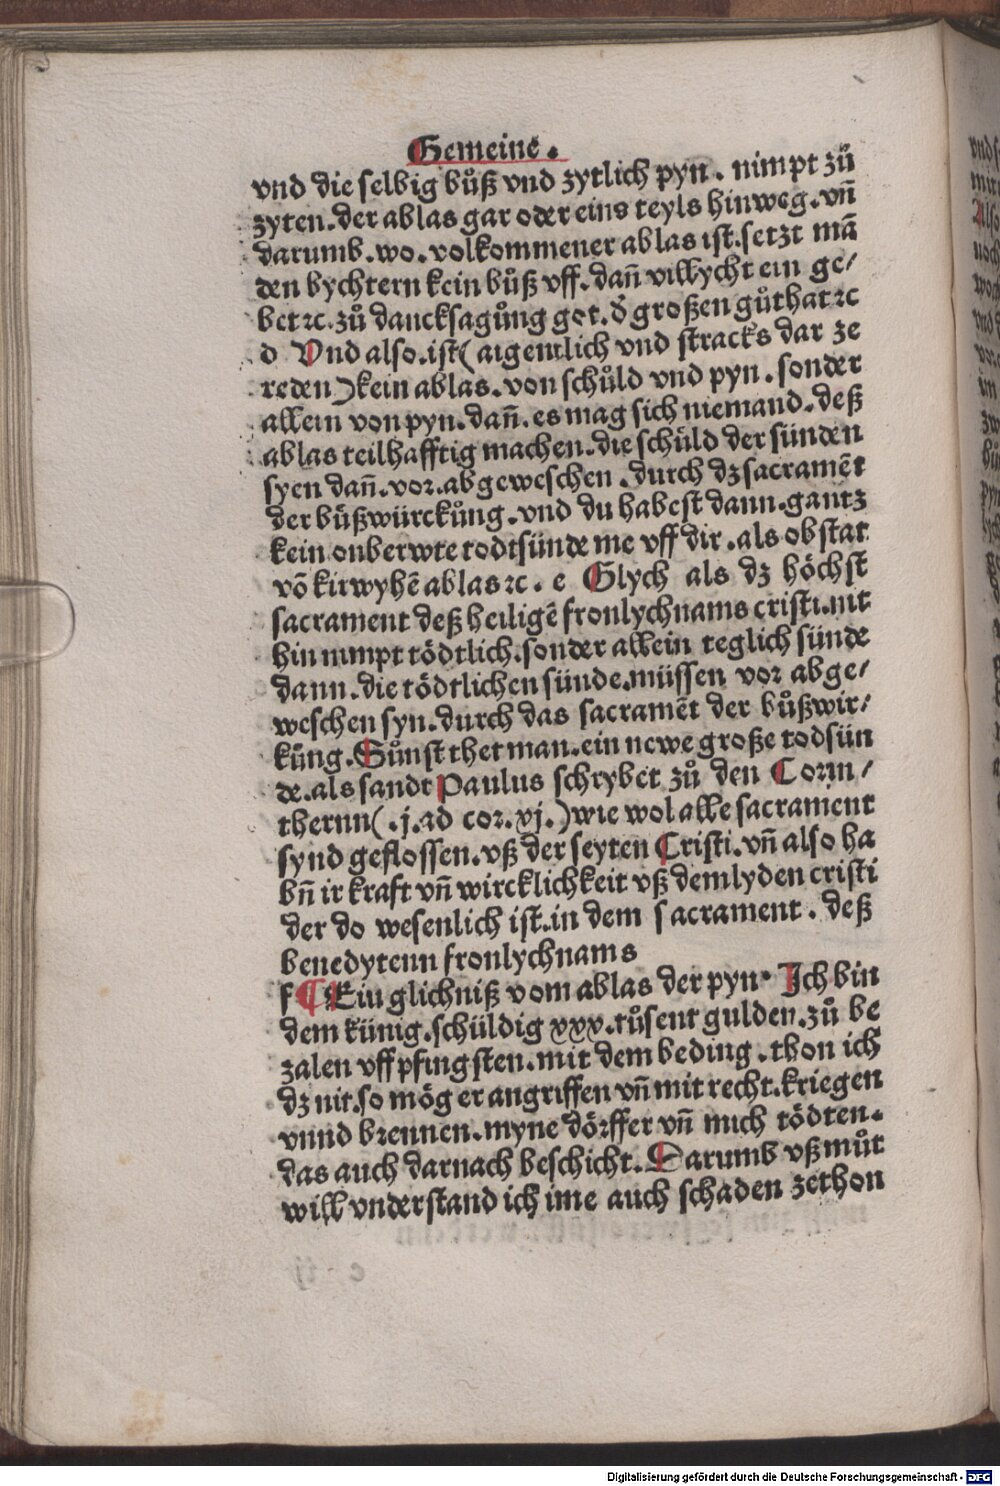 Gemeine.
vnd die selbig bůß vnd zytlich pyn. nimpt zů
zyten. der ablas gar oder eins teyls hinweg. vñ
darumb. wo. volkommener ablas ist. setzt mā
den bychtern kein bůß vff. dañ villycht ein ge/
bet ⁊c. zů dancksagůng got. d̕ großen gůthat ⁊c
d Vnd also. ist( aigentlich vnd stracks dar ze
reden)kein ablas. von schůld vnd pyn. sonder
allein von pyn. dañ. es mag sich niemand. deß
ablas teilhafftig machen. die schüld der sünden
syen dañ. vor. abgeweschen. durch dz sacramēt
der bůßwürckůng. vnd du habest dann. gantz
kein onberwte todtsünde me vff dir. als obstat
vō kirwyhē ablas ⁊c. e Glych als dz höchst
sacrament deß heiligē fronlychnams cristi. nit
hin nimpt tödtlich. sonder allein teglich sünde
dann. die tödtlichen sünde. müssen vor abge/
weschen syn. durch das sacramēt der bůßwir/
kůng. Sůnst thet man. ein newe große todsün
de. als sandt Paulus schrybet zů den Corin/
thernn(.j. ad cor. xj.)wie wol alle sacrament
synd geflossen. vß der seyten Cristi. vñ also ha
bñ ir kraft vñ wircklichkeit vß dem lyden cristi
der do wesenlich ist. in dem sacrament. deß
benedytenn fronlychnams
f ¶ Ein glichniß vom ablas der pyn. Ich bin
dem künig. schüldig xxx. tůsent gulden. zů be
zalen vff pfingsten. mit dem beding. thon ich
dz nit. so mög er angriffen vñ mit recht. kriegen
vnnd brennen. myne dörffer vñ mich tödten.
das auch darnach beschicht. Darumb vß můt
will vnderstand ich ime auch schaden zethon
Digitalisierung gefördert durch die Deutsche Forschungsgemeinschaft - DFG